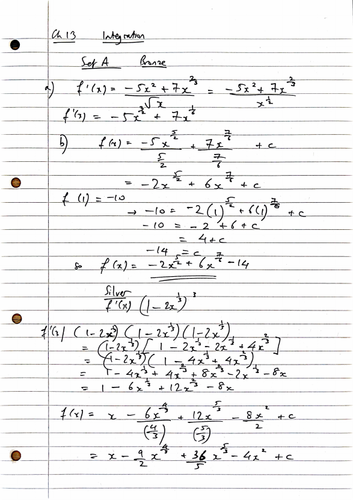 Ch 13 Integration
Set A Bronze
a) f'(x) = -5x² + 7x^(2/3) / √x = -5x² + 7x^(2/3) / x^(1/2)
f'(x) = -5x^(3/2) + 7x^(1/6)
b) f(x) = -5x^(5/2) / (5/2) + 7x^(7/6) / (7/6) + c
= -2x^(5/2) + 6x^(7/6) + c
f(1) = -10
→ -10 = -2(1)^(5/2) + 6(1)^(7/6) + c
-10 = -2 + 6 + c
= 4 + c
-14 = c
so f(x) = -2x^(5/2) + 6x^(7/6) - 14
Silver
f'(x) (1 - 2x^(1/3))³
f'(x) (1 - 2x^(1/3)) (1 - 2x^(1/3)) (1 - 2x^(1/3))
= (1 - 2x^(1/3)) [1 - 2x^(1/3) - 2x^(1/3) + 4x^(2/3)]
= (1 - 2x^(1/3)) (1 - 4x^(1/3) + 4x^(2/3))
= 1 - 4x^(1/3) + 4x^(2/3) + 8x^(2/3) - 2x^(1/3) - 8x
= 1 - 6x^(1/3) + 12x^(2/3) - 8x
f(x) = x - 6x^(4/3) / (4/3) + 12x^(5/3) / (5/3) - 8x² / 2 + c
= x - 9/2 x^(4/3) + 36/5 x^(5/3) - 4x² + c